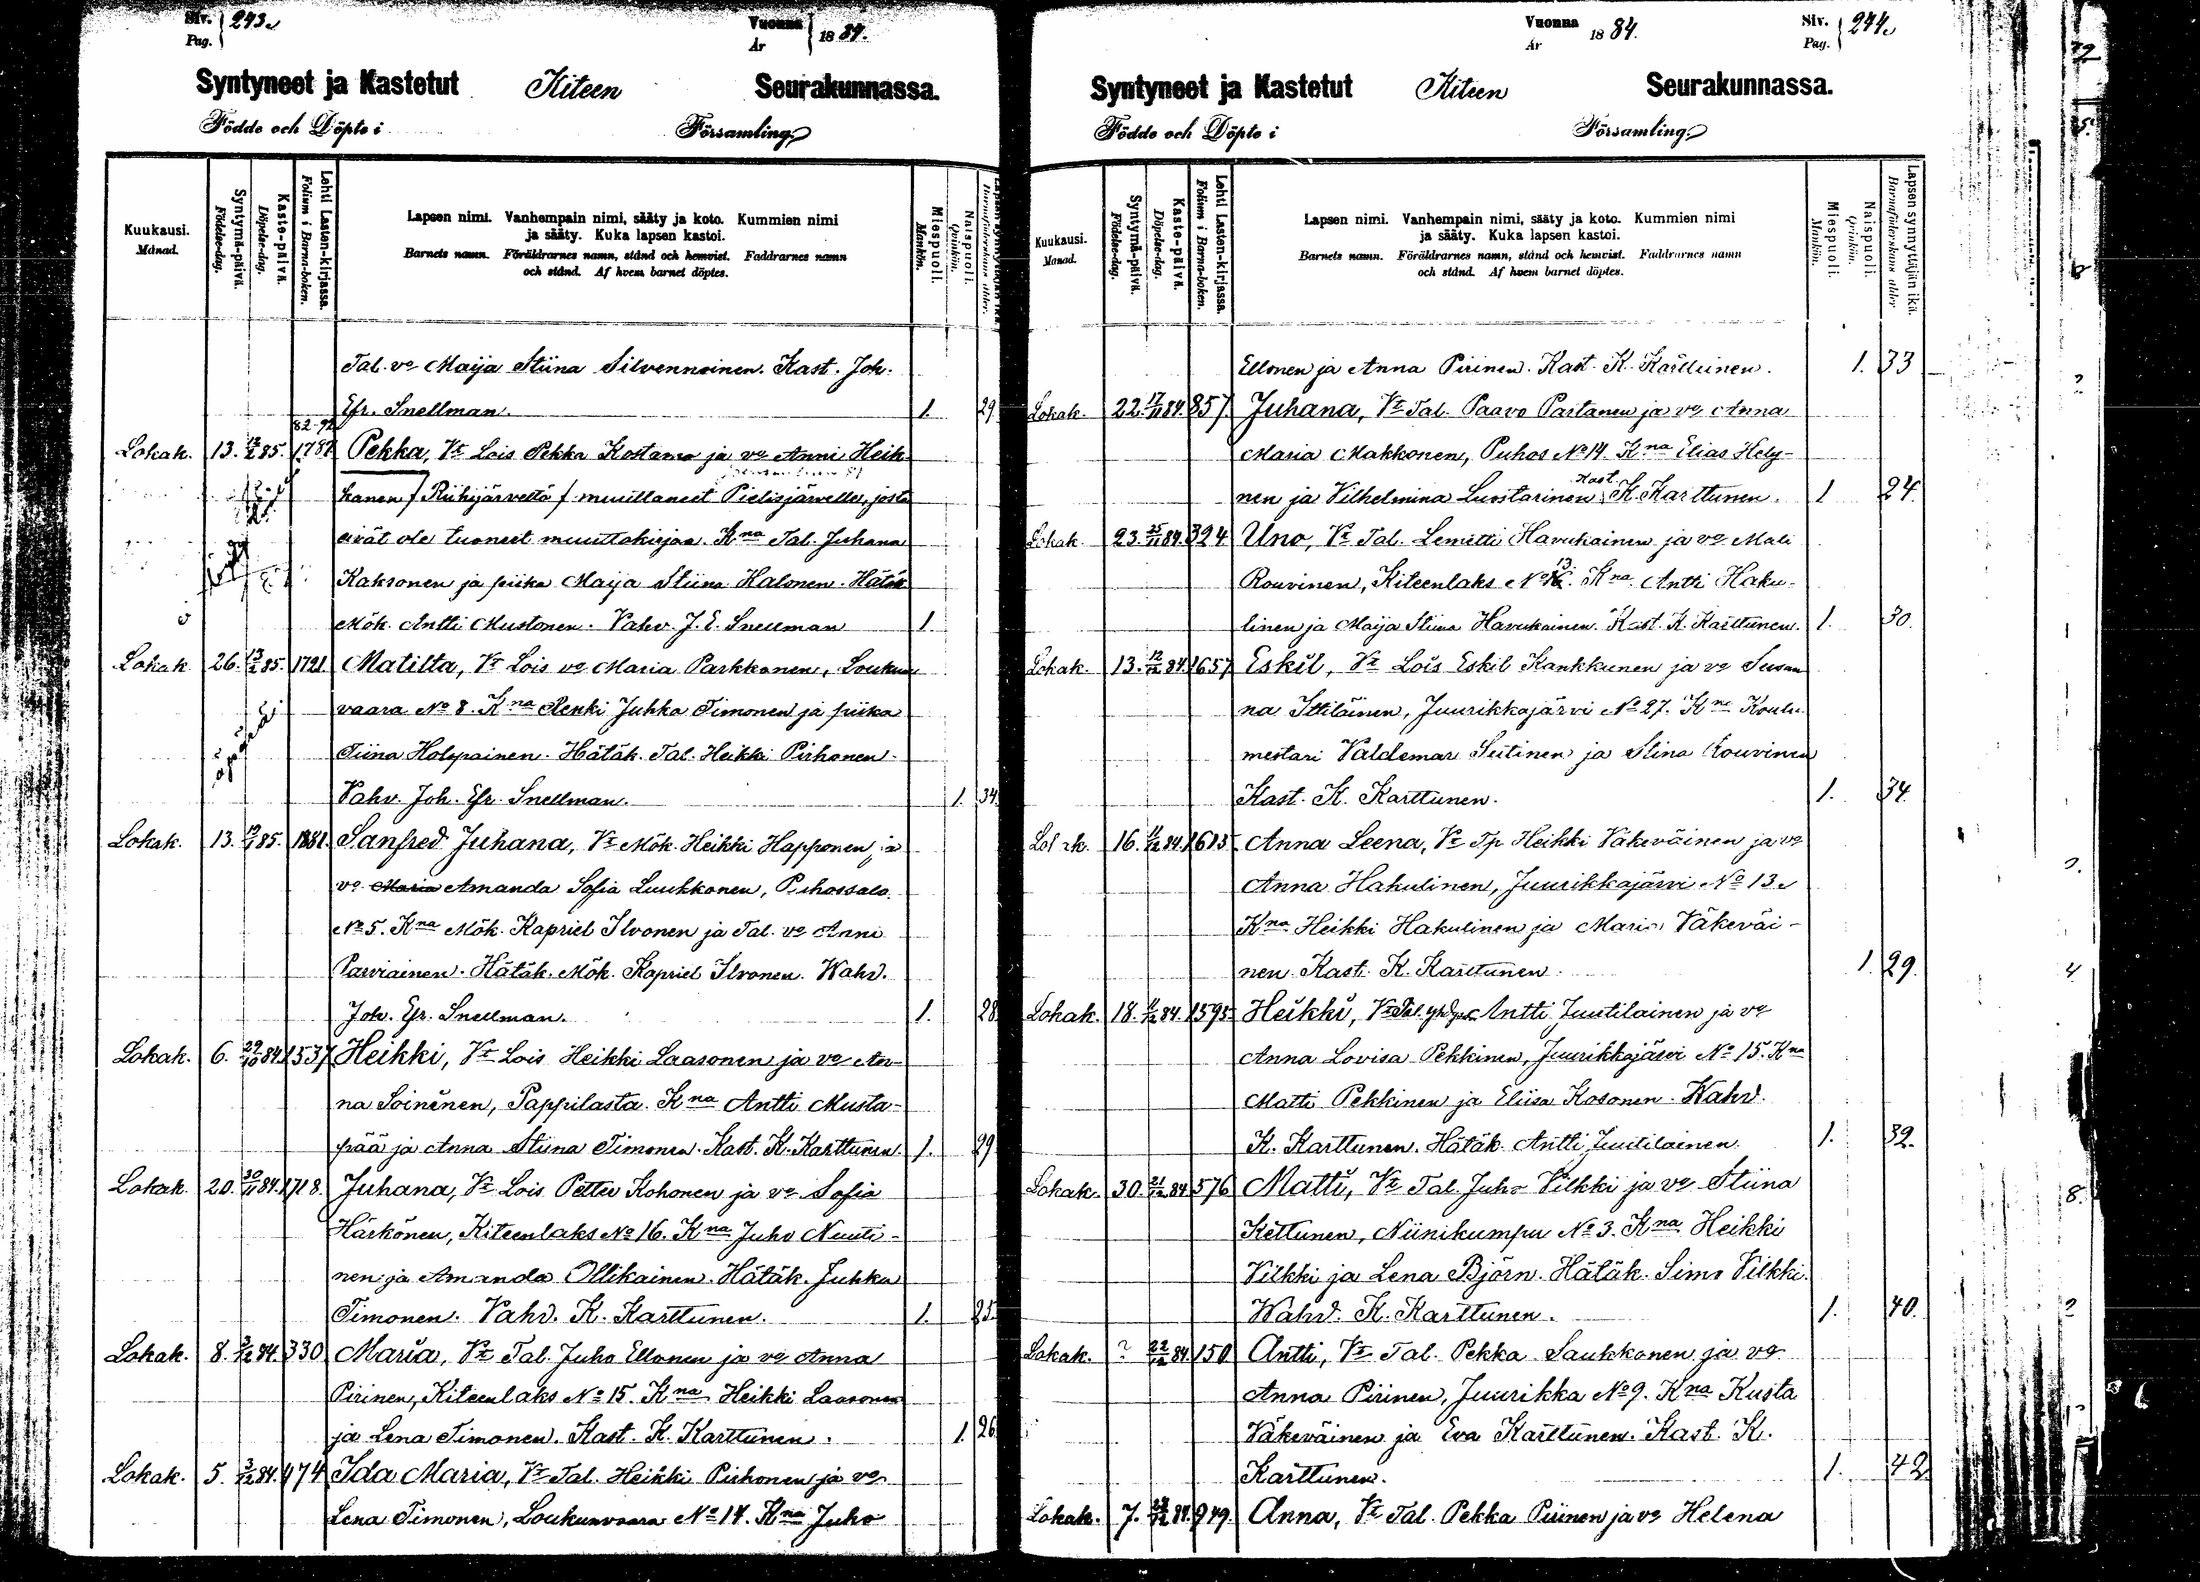 Siv. Pag. 243.
Vuonna År 1884.
Syntyneet ja Kastetut Kiteen Seurakunnassa.
Födde och Döpte i Församling
Kuukausi. Månad.
Syntymä-päivä. Födelse-dag.
Kaste-päivä. Döpelse-dag.
Lehti Lasten-kirjassa. Folium i Barna-boken.
Lapsen nimi. Vanhempain nimi, sääty ja koto. Kummien nimi
ja sääty. Kuka lapsen kastoi.
Barnets namn. Föräldrarnes namn, stånd och hemvist. Faddrarnes namn
och stånd. Af hvem barnet döptes.
Miespuoli. Mankön.
Naispuoli. Qvinkön.
Tal. vo Maija Stiina Silvennoinen. Kast. Joh.
Efr. Snellman. 1. 29
82-92
Lokak. 13. 13/2 85. 1787 Pekka, Vt Lois Pekka Kostamo ja vo Anni Heik-
kanen / Riihijärveltä / muuttaneet Pielisjärvelle, josta
eivät ole tuoneet muuttokirjaa. Kna Tal. Juhana
Kaksonen ja piika Maija Stiina Halonen. Hätäk
Mök. Antti Mustonen. Vahv. J. E. Snellman 1.
Lokak. 26. 13/2 85. 1721. Matilta, Vt Lois vo Maria Parkkonen, Loukun
vaara No 8. Kna Renki Juhka Timonen ja piika
Tiina Holopainen. Hätäk. Tal. Heikki Pirhonen.
Vahv. Joh. Efr. Snellman. 1. 34.
Lokak. 13. 85. 1881. Sanfred Juhana, Vt Mök. Heikki Happonen ja
vo Maria Amanda Sofia Luukkonen, Puhossalo
No 5. Kna Mök. Kapriel Ilvonen ja Tal. vo Anni
Parviainen. Hätäk. Mök. Kapriel Ilvonen. Wahv.
Joh. Efr. Snellman. 1. 28
Lokak. 6. 29/10 84. 1537 Heikki, Vt Lois Heikki Laasonen ja vo An-
na Soininen, Pappilasta. Kna Antti Musta-
pää ja Anna Stiina Timonen. Kast. K. Karttunen. 1. 29
Lokak. 20. 30/11 84. 1718. Juhana, Vt Lois Petter Kohonen ja vo Sofia
Härkönen, Kiteenlaks No 16. Kna Juho Nuuti-
nen ja Amanda Ollikainen. Hätäk. Juhka
Timonen. Vahv. K. Karttunen. 1. 25
Lokak. 8. 3/12 84. 330 Maria, Vt Tal. Juho Ellonen ja vo Anna
Pirinen, Kiteenlaks No 15. Kna Heikki Laasonen
ja Lena Timonen. Kast. K. Karttunen. 1. 26
Lokak. 5. 3/12 84. 474 Ida Maria, Vt Tal. Heikki Pirhonen ja vo
Lena Timonen, Loukunvaara No 14. Kna Juho
Siv. Pag. 244.
Vuonna År 1884.
Syntyneet ja Kastetut Kiteen Seurakunnassa.
Födde och Döpte i Församling
Kuukausi. Månad.
Syntymä-päivä. Födelse-dag.
Kaste-päivä. Döpelse-dag.
Lehti Lasten-kirjassa. Folium i Barna-boken.
Lapsen nimi. Vanhempain nimi, sääty ja koto. Kummien nimi
ja sääty. Kuka lapsen kastoi.
Barnets namn. Föräldrarnes namn, stånd och hemvist. Faddrarnes namn
och stånd. Af hvem barnet döptes.
Miespuoli. Mankön.
Naispuoli. Qvinkön.
Lapsen synnyttäjän ikä. Barnaföderskans ålder
Ellonen ja Anna Pirinen. Kast. K. Karttunen. 1. 33
Lokak. 22. 17/11 84. 857 Juhana, Vt Tal. Paavo Partanen ja vo Anna
Maria Makkonen, Puhos No 14. Kna Elias Hely-
nen ja Vilhelmina Luostarinen. Kast. K. Karttunen. 1 24.
Lokak. 23. 25/11 84. 324 Uno, Vt Tal. Lemetti Havukainen ja vo Mali
Rouvinen, Kiteenlaks No 13. Kna Antti Haku-
linen ja Maija Stiina Havukainen. Kast. K. Karttunen. 1. 30.
Lokak. 13. 12/12 84. 1657 Eskil, Vt Lois Eskil Kankkunen ja vo Susan
na Ittiläinen, Juurikkajärvi No 27. Kna Koulu-
mestari Valdemar Seitinen ja Stina Rouvinen
Kast. K. Karttunen. 1. 34.
Lokak. 16. 84. 1615 Anna Leena, Vt Tp Heikki Väkeväinen ja vo
Anna Hakulinen, Juurikkajärvi No 13.
Kna Heikki Hakulinen ja Maria Väkeväi-
nen. Kast. K. Karttunen. 1. 29.
Lokak. 18. 84. 1595 Heikki, Vt Tal. Antti Juutilainen ja vo
Anna Lovisa Pekkinen, Juurikkajärvi No 15. Kna
Matti Pekkinen ja Eliisa Kosonen. Wahv.
K. Karttunen. Hätäk. Antti Juutilainen. 1. 32.
Lokak. 30. 21/12 84. 576 Matti, Vt Tal. Juho Vilkki ja vo Stiina
Kettunen, Niinikumpu No 3. Kna Heikki
Vilkki ja Lena Björn. Hätäk. Simo Vilkki.
Wahv. K. Karttunen. 1. 40.
Lokak. ? 22/12 84. 150 Antti, Vt Tal. Pekka Saukkonen ja vo
Anna Pirinen, Juurikka No 9. Kna Kusta
Väkeväinen ja Eva Karttunen. Kast. K.
Karttunen. 1. 42
Lokak. 7. 84. 949. Anna, Vt Tal. Pekka Piinen ja vo Helena